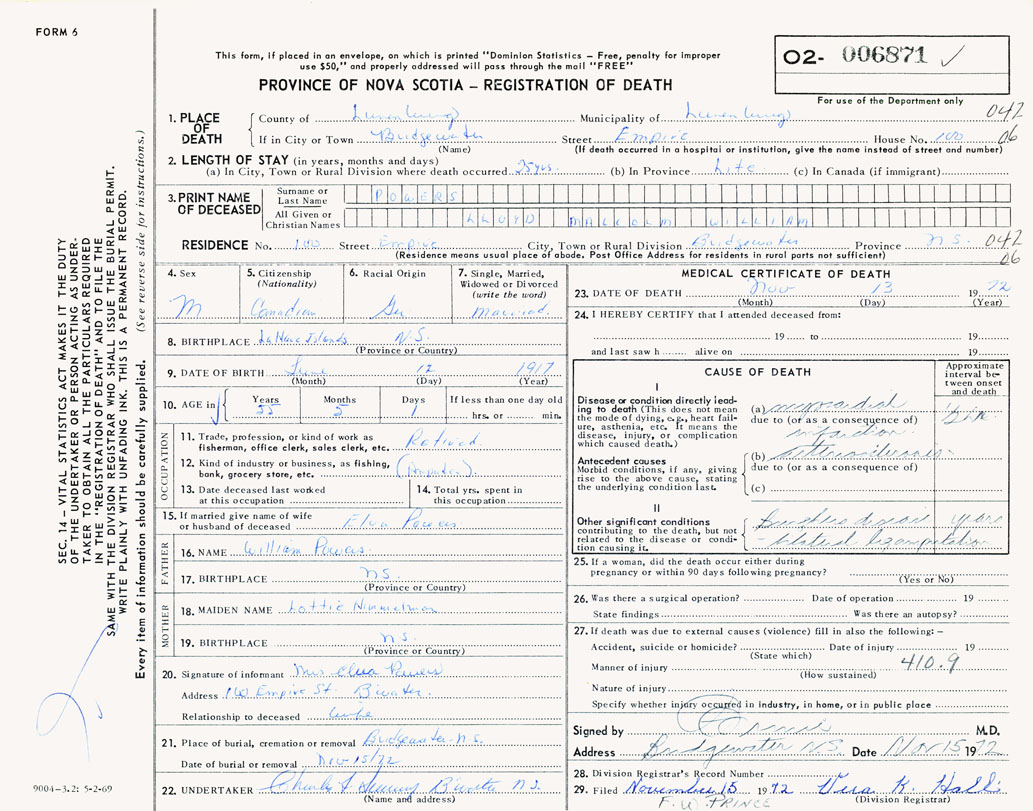 FORM 6
This form, if placed in an envelope, on which is printed "Dominion Statistics – Free, penalty for improper
use $50," and properly addressed will pass through the mail "FREE"
PROVINCE OF NOVA SCOTIA – REGISTRATION OF DEATH
O2- 006871 ✓
For use of the Department only
042
06
1. PLACE OF DEATH
County of Lunenburg Municipality of Lunenburg
If in City or Town Bridgewater Street Empire House No. 100
(Name) (If death occurred in a hospital or institution, give the name instead of street and number)
2. LENGTH OF STAY (in years, months and days)
(a) In City, Town or Rural Division where death occurred 25 yrs. (b) In Province Life (c) In Canada (if immigrant)
3. PRINT NAME OF DECEASED
Surname or Last Name POWERS
All Given or Christian Names LLOYD MALCOLM WILLIAM
RESIDENCE No. 100 Street Empire City, Town or Rural Division Bridgewater Province N.S. 042
(Residence means usual place of abode. Post Office Address for residents in rural parts not sufficient) 06
4. Sex
M
5. Citizenship
(Nationality)
Canadian
6. Racial Origin
Ger
7. Single, Married,
Widowed or Divorced
(write the word)
Married.
8. BIRTHPLACE LaHave Islands N.S.
(Province or Country)
9. DATE OF BIRTH June 12 1917
(Month) (Day) (Year)
10. AGE in Years 55 Months 5 Days 1 If less than one day old
hrs. or min.
OCCUPATION
11. Trade, profession, or kind of work as
fisherman, office clerk, sales clerk, etc. Retired.
12. Kind of industry or business, as fishing,
bank, grocery store, etc.
13. Date deceased last worked
at this occupation
14. Total yrs. spent in
this occupation
15. If married give name of wife
or husband of deceased Elva Powers
FATHER
16. NAME William Powers
17. BIRTHPLACE N.S.
(Province or Country)
MOTHER
18. MAIDEN NAME Lottie
19. BIRTHPLACE N.S.
(Province or Country)
20. Signature of informant Mrs Elva Powers
Address 100 Empire St. B'water
Relationship to deceased wife
21. Place of burial, cremation or removal Bridgewater N.S.
Date of burial or removal Nov 15/72
22. UNDERTAKER B'water N.S.
(Name and address)
MEDICAL CERTIFICATE OF DEATH
23. DATE OF DEATH Nov 13 1972
(Month) (Day) (Year)
24. I HEREBY CERTIFY that I attended deceased from:
19 to 19
and last saw h alive on 19
CAUSE OF DEATH
Approximate
interval be-
tween onset
and death
I
Disease or condition directly lead-
ing to death (This does not mean
the mode of dying, e.g., heart fail-
ure, asthenia, etc. It means the
disease, injury, or complication
which caused death.)
(a)
due to (or as a consequence of)
infarction
Antecedent causes
Morbid conditions, if any, giving
rise to the above cause, stating
the underlying condition last.
(b)
due to (or as a consequence of)
(c)
II
Other significant conditions
contributing to the death, but not
related to the disease or condi-
tion causing it.
years
- bilateral
25. If a woman, did the death occur either during
pregnancy or within 90 days following pregnancy?
(Yes or No)
26. Was there a surgical operation? Date of operation 19
State findings Was there an autopsy?
27. If death was due to external causes (violence) fill in also the following: –
Accident, suicide or homicide? Date of injury 19
(State which)
Manner of injury 410.9
(How sustained)
Nature of injury
Specify whether injury occurred in industry, in home, or in public place
Signed by M.D.
Address Bridgewater N.S. Date Nov 15 1972
28. Division Registrar's Record Number
29. Filed November 15 1972 Vera K. Hall
(Division Registrar)
F. W. PRINCE
SEC. 14 – VITAL STATISTICS ACT MAKES IT THE DUTY
OF THE UNDERTAKER OR PERSON ACTING AS UNDER-
TAKER TO OBTAIN ALL THE PARTICULARS REQUIRED
IN THE "REGISTRATION OF DEATH" AND TO FILE THE
SAME WITH THE DIVISION REGISTRAR WHO SHALL ISSUE THE BURIAL PERMIT.
WRITE PLAINLY WITH UNFADING INK. THIS IS A PERMANENT RECORD.
Every item of information should be carefully supplied. (See reverse side for instructions.)
9004-3.2: 5-2-69